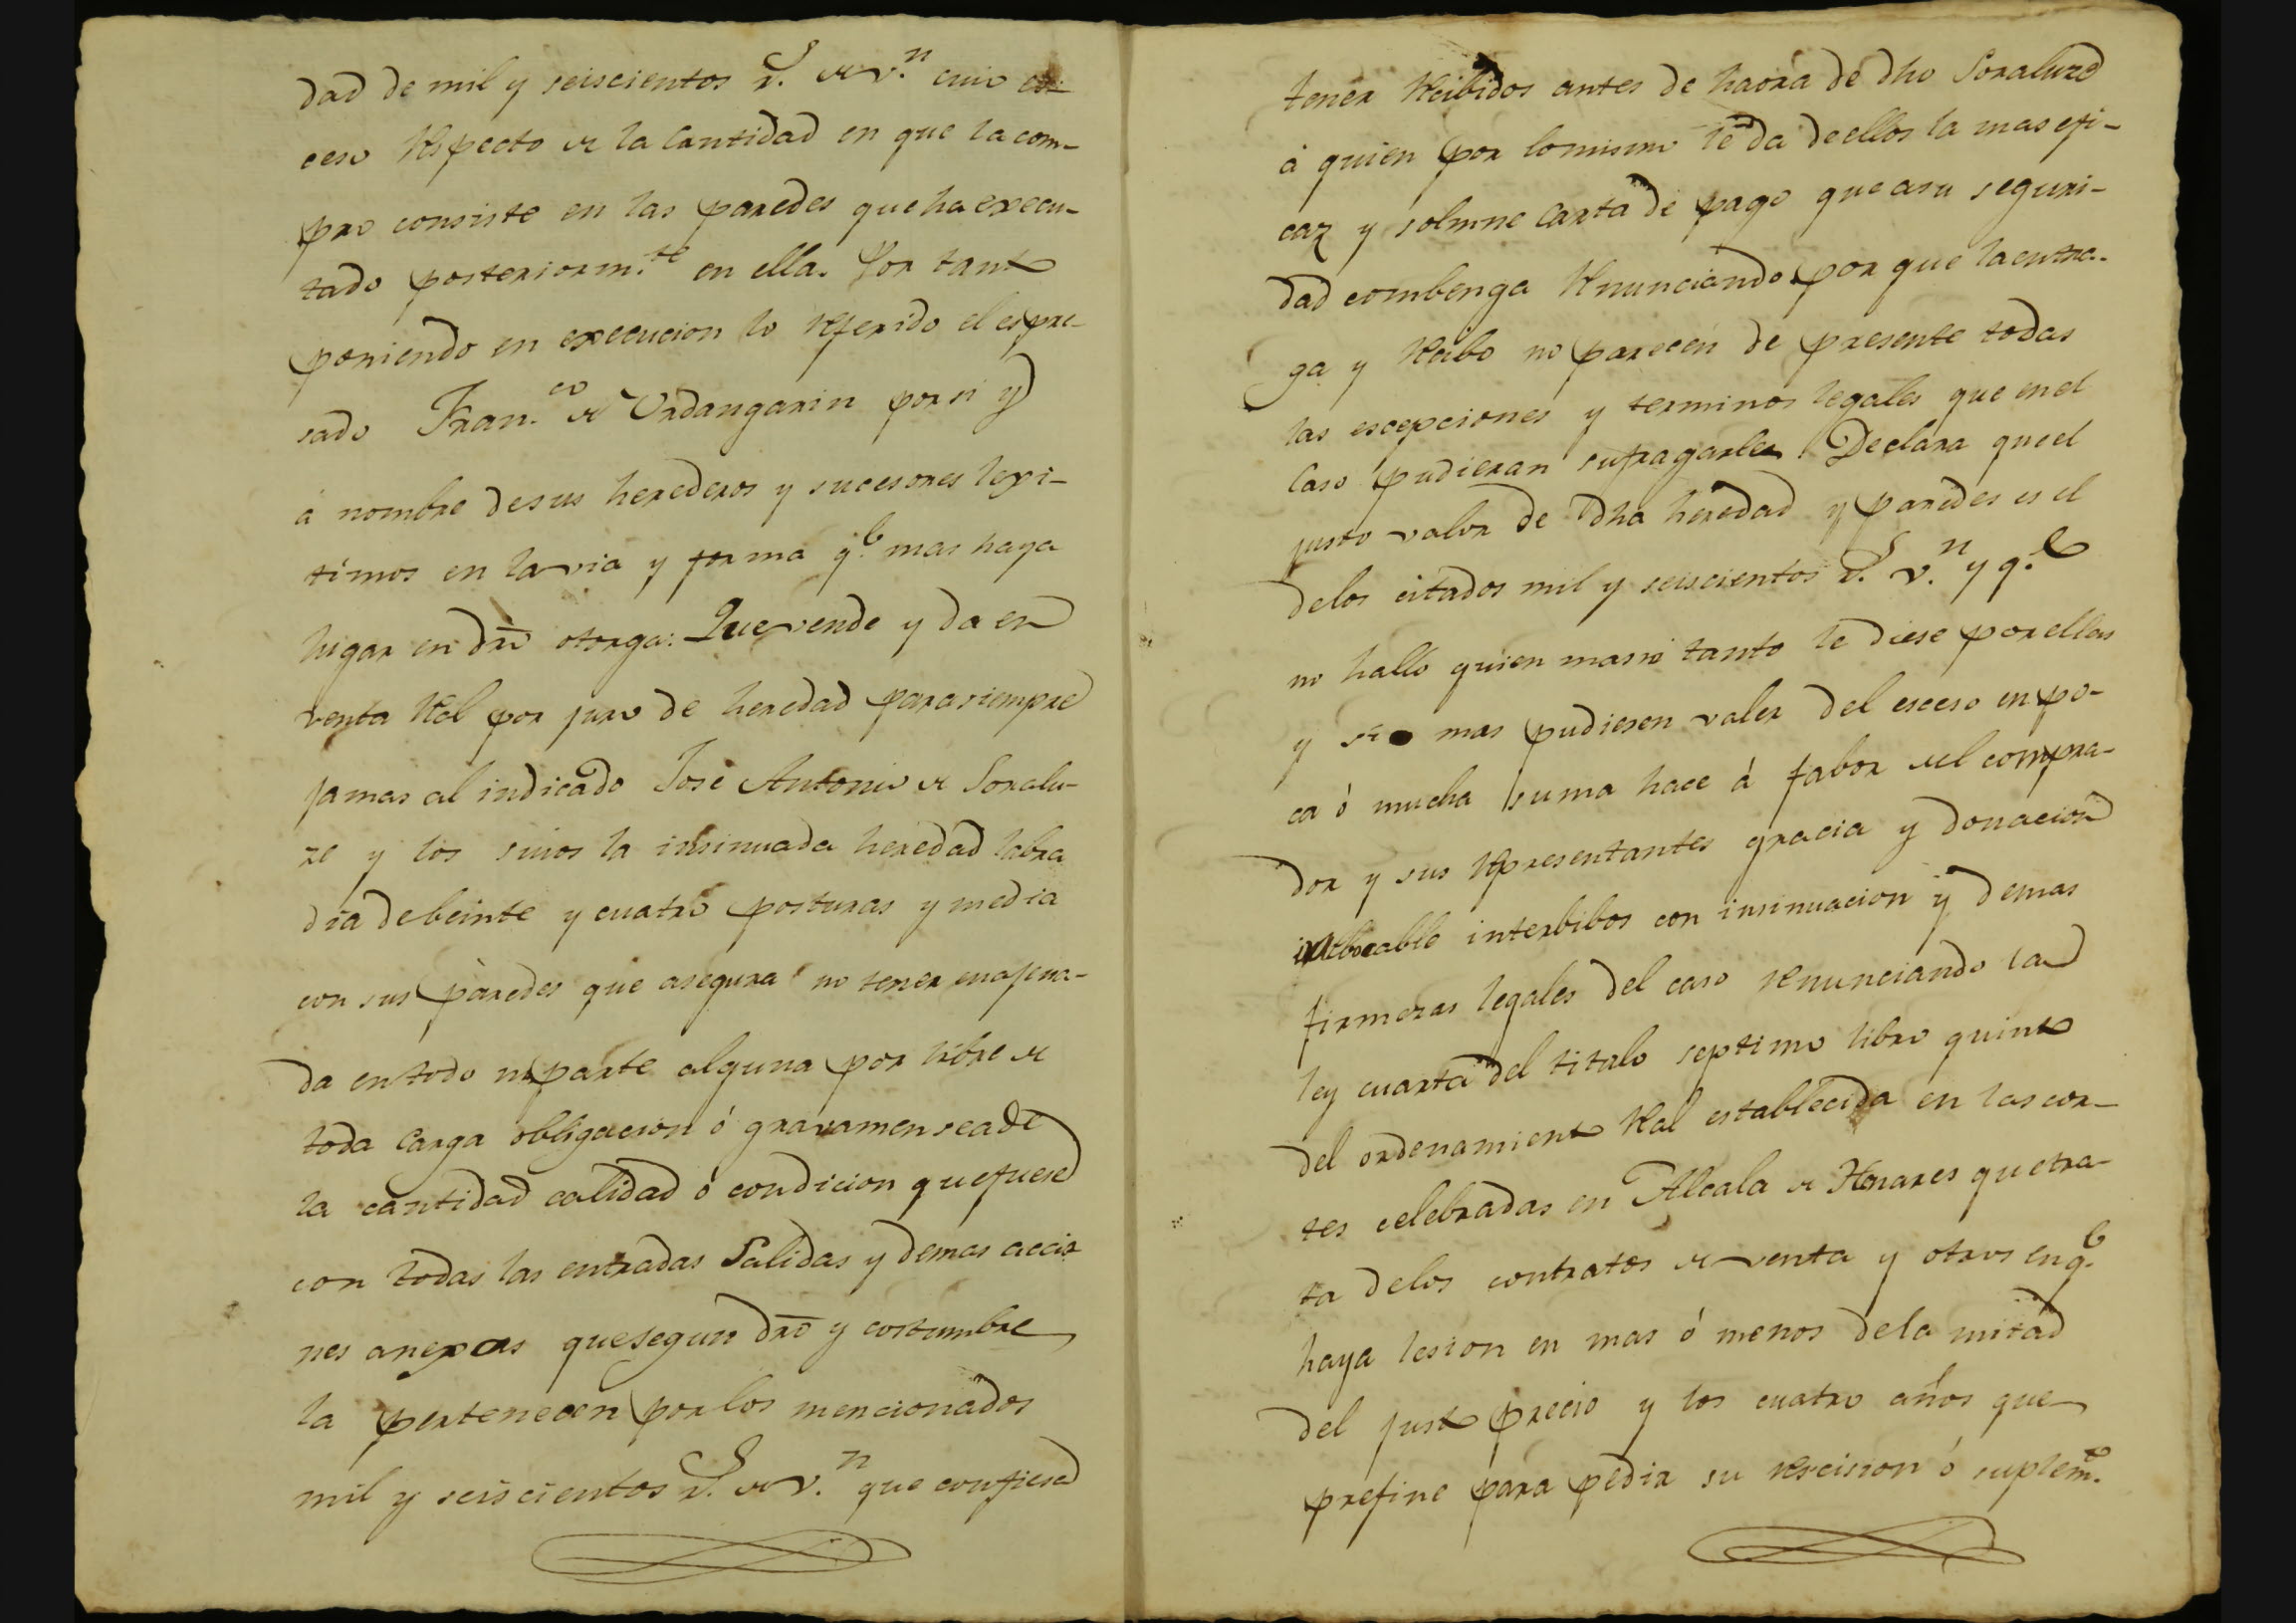 dad de mil y seiscientos r.s de v.n cuio es-
ceso respecto de la Cantidad en que la com-
pro consiste en las paredes que ha execu-
tado posteriorm.te en ella. Por tanto
poniendo en execucion lo referido el espre-
sado Fran.co de Urdangarin por si y
á nombre de sus herederos y sucesores lexi-
timos en la via y forma q.e mas haya
lugar en dr̄o otorga: Que vende y da en
venta Real por juro de heredad para siempre
jamas al indicado José Antonio de Soralu-
ze y los suios la insinuada heredad labra
dia de beinte y cuatro posturas y media
con sus paredes que asegura no tener enajena-
da en todo ni parte alguna por libre de
toda Carga obligacion ó gravamen sea de
la cantidad calidad ó condicion que fuese
con todas las entradas Salidas y demas accio
nes anexas que segun dr̄o y costumbre
la pertenecen por los mencionados
mil y seiscientos r.s de v.n que confiesa
tener recibidos antes de haora de dho Soraluze
á quien por lo mismo le da de ellos la mas efi-
caz y solmne Carta de pago que a su seguri-
dad combenga renunciando por que la entre-
ga y recibo no parecen de presente todas
las escepciones y terminos legales que en el
Caso pudieran sufragarles. Declara que el
justo valor de dha heredad y paredes es el
de los citados mil y seiscientos r.s v.n y q.e
no halló quien mas ni tanto le diese por ellas
y si mas pudiesen valer del esceso en po-
ca ó mucha suma hace á fabor del compra-
dor y sus representantes gracia y donacion
irrebocable interbibos con insinuacion y demas
firmezas legales del caso renunciando la
ley cuarta del titulo septimo libro quinto
del ordenamiento Real establecida en las cor-
tes celebradas en Alcala de Henares que tra-
ta de los contratos de venta y otros en q.e
haya lesion en mas ó menos de la mitad
del justo precio y los cuatro años que
prefine para pedir su rescision ó suplem.to